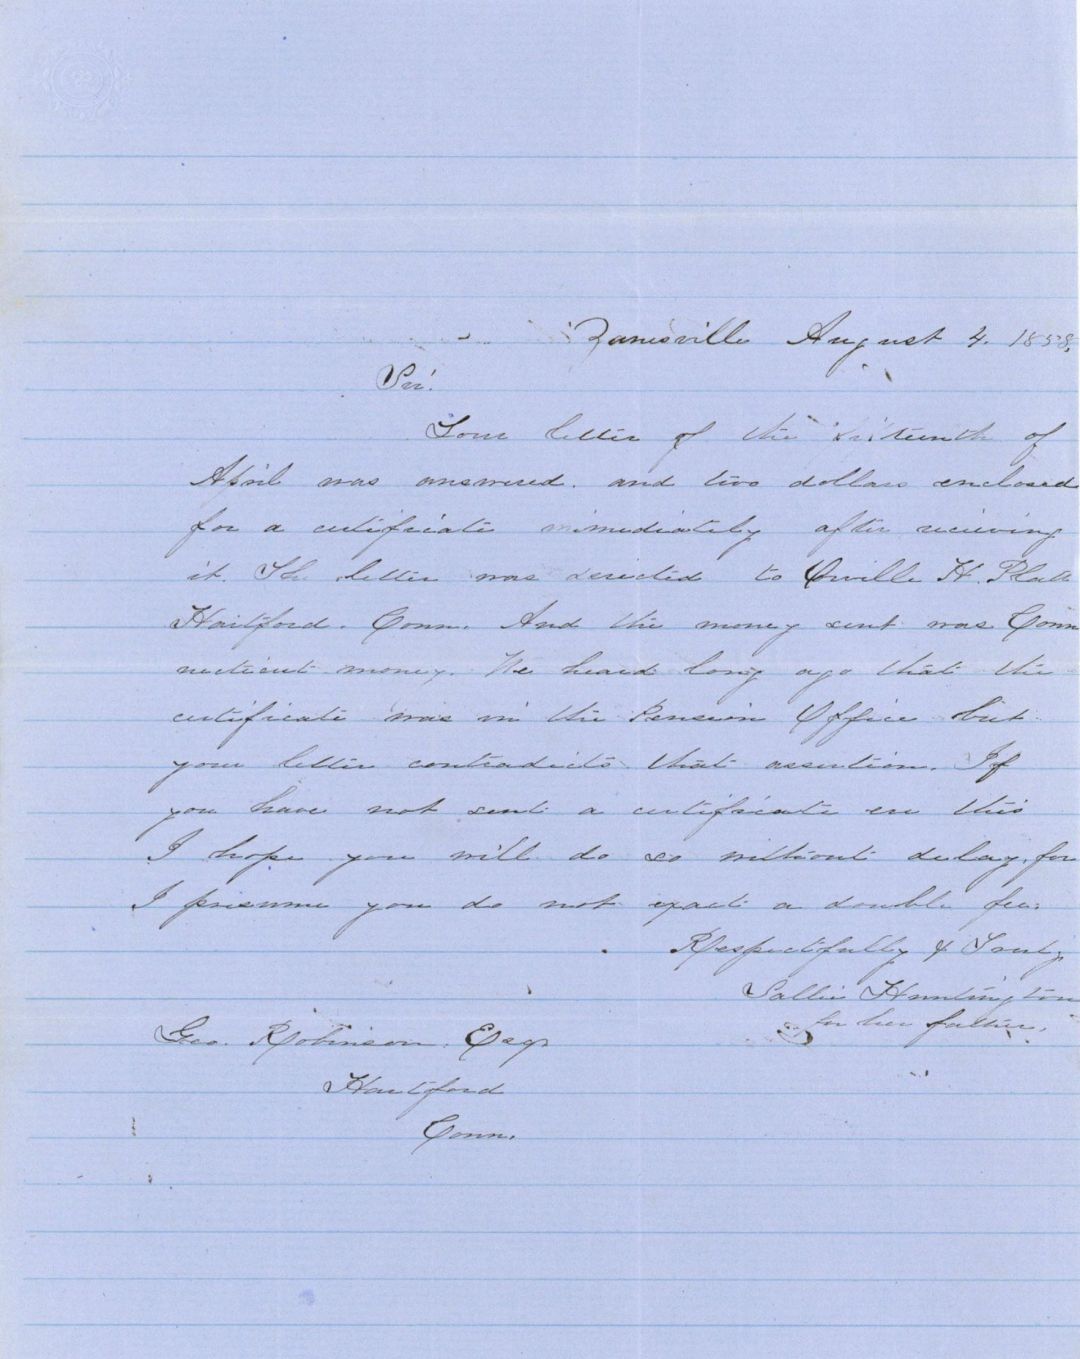 Zanesville August 4. 1858.
Sir!
Your letter of the sixteenth of
April was answered. and two dollars enclosed
for a certificate immediately after recieving
it. The letter was directed to Orville H. Platt
Hartford. Conn. And the money sent was Conn
necticut money. We heard long ago that the
certificate was in the Pension Office but
your letter contradicts that assertion. If
you have not sent a certificate on this
I hope you will do so without delay, for
I presume you do not exact a double fee.
Respectfully & Truly
Sallie Huntington
for her father.
Geo. Robinson. Esqr
Hartford
Conn.